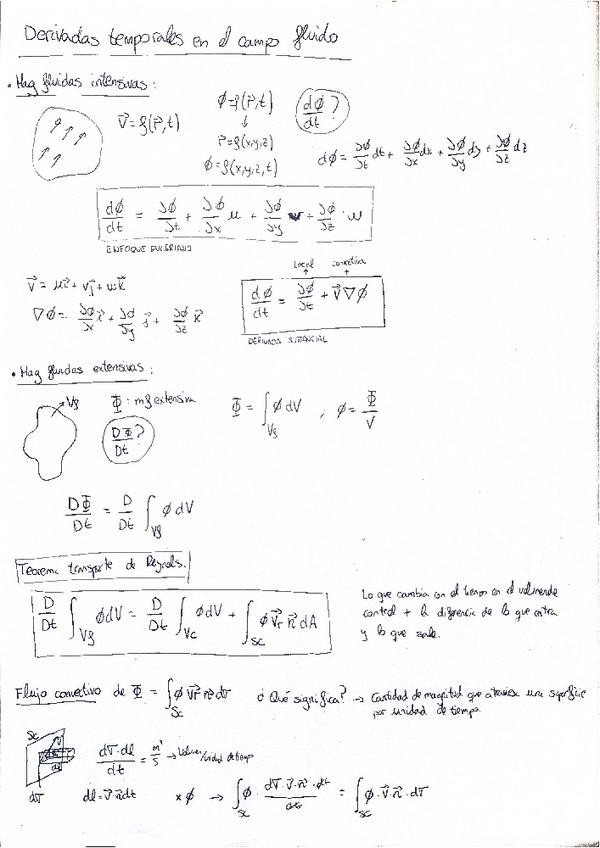 Derivadas temporales en el campo fluido
• Mag fluidas intensivas:
V⃗ = f(r⃗, t)
ϕ = f(r⃗, t)
↓
r⃗ = f(x,y,z)
ϕ = f(x,y,z,t)
dϕ/dt ?
dϕ = ∂ϕ/∂t dt + ∂ϕ/∂x dx + ∂ϕ/∂y dy + ∂ϕ/∂z dz
dϕ/dt = ∂ϕ/∂t + ∂ϕ/∂x u + ∂ϕ/∂y v + ∂ϕ/∂z · w
ENFOQUE EULERIANO
V⃗ = u i⃗ + v j⃗ + w k⃗
∇ϕ = ∂ϕ/∂x i⃗ + ∂ϕ/∂y j⃗ + ∂ϕ/∂z k⃗
Local convectiva
dϕ/dt = ∂ϕ/∂t + V⃗ ∇ϕ
DERIVADA SUSTANCIAL
• Mag fluidas extensivas:
Vf
Φ : mg extensiva
DΦ/Dt ?
Φ = ∫Vf ϕ dV ; ϕ = Φ/V
DΦ/Dt = D/Dt ∫Vf ϕ dV
Teorema transporte de Reynols.
D/Dt ∫Vf ϕ dV = D/Dt ∫Vc ϕ dV + ∫Sc ϕ v⃗r n⃗ dA
Lo que cambia con el tiempo en el volumen de
control + la diferencia de lo que entra
y lo que sale.
Flujo convectivo de Φ = ∫Sc ϕ v⃗r n⃗ dσ ¿Qué significa? → Cantidad de magnitud que atraviesa una superficie
por unidad de tiempo.
Sc
dl
dσ
dσ · dl / dt = m³/s → Volumen/unidad de tiempo
dl = v⃗ · n⃗ dt × ϕ → ∫Sc ϕ · dσ · v⃗ · n⃗ · dt / dt = ∫Sc ϕ · v⃗ · n⃗ · dσ